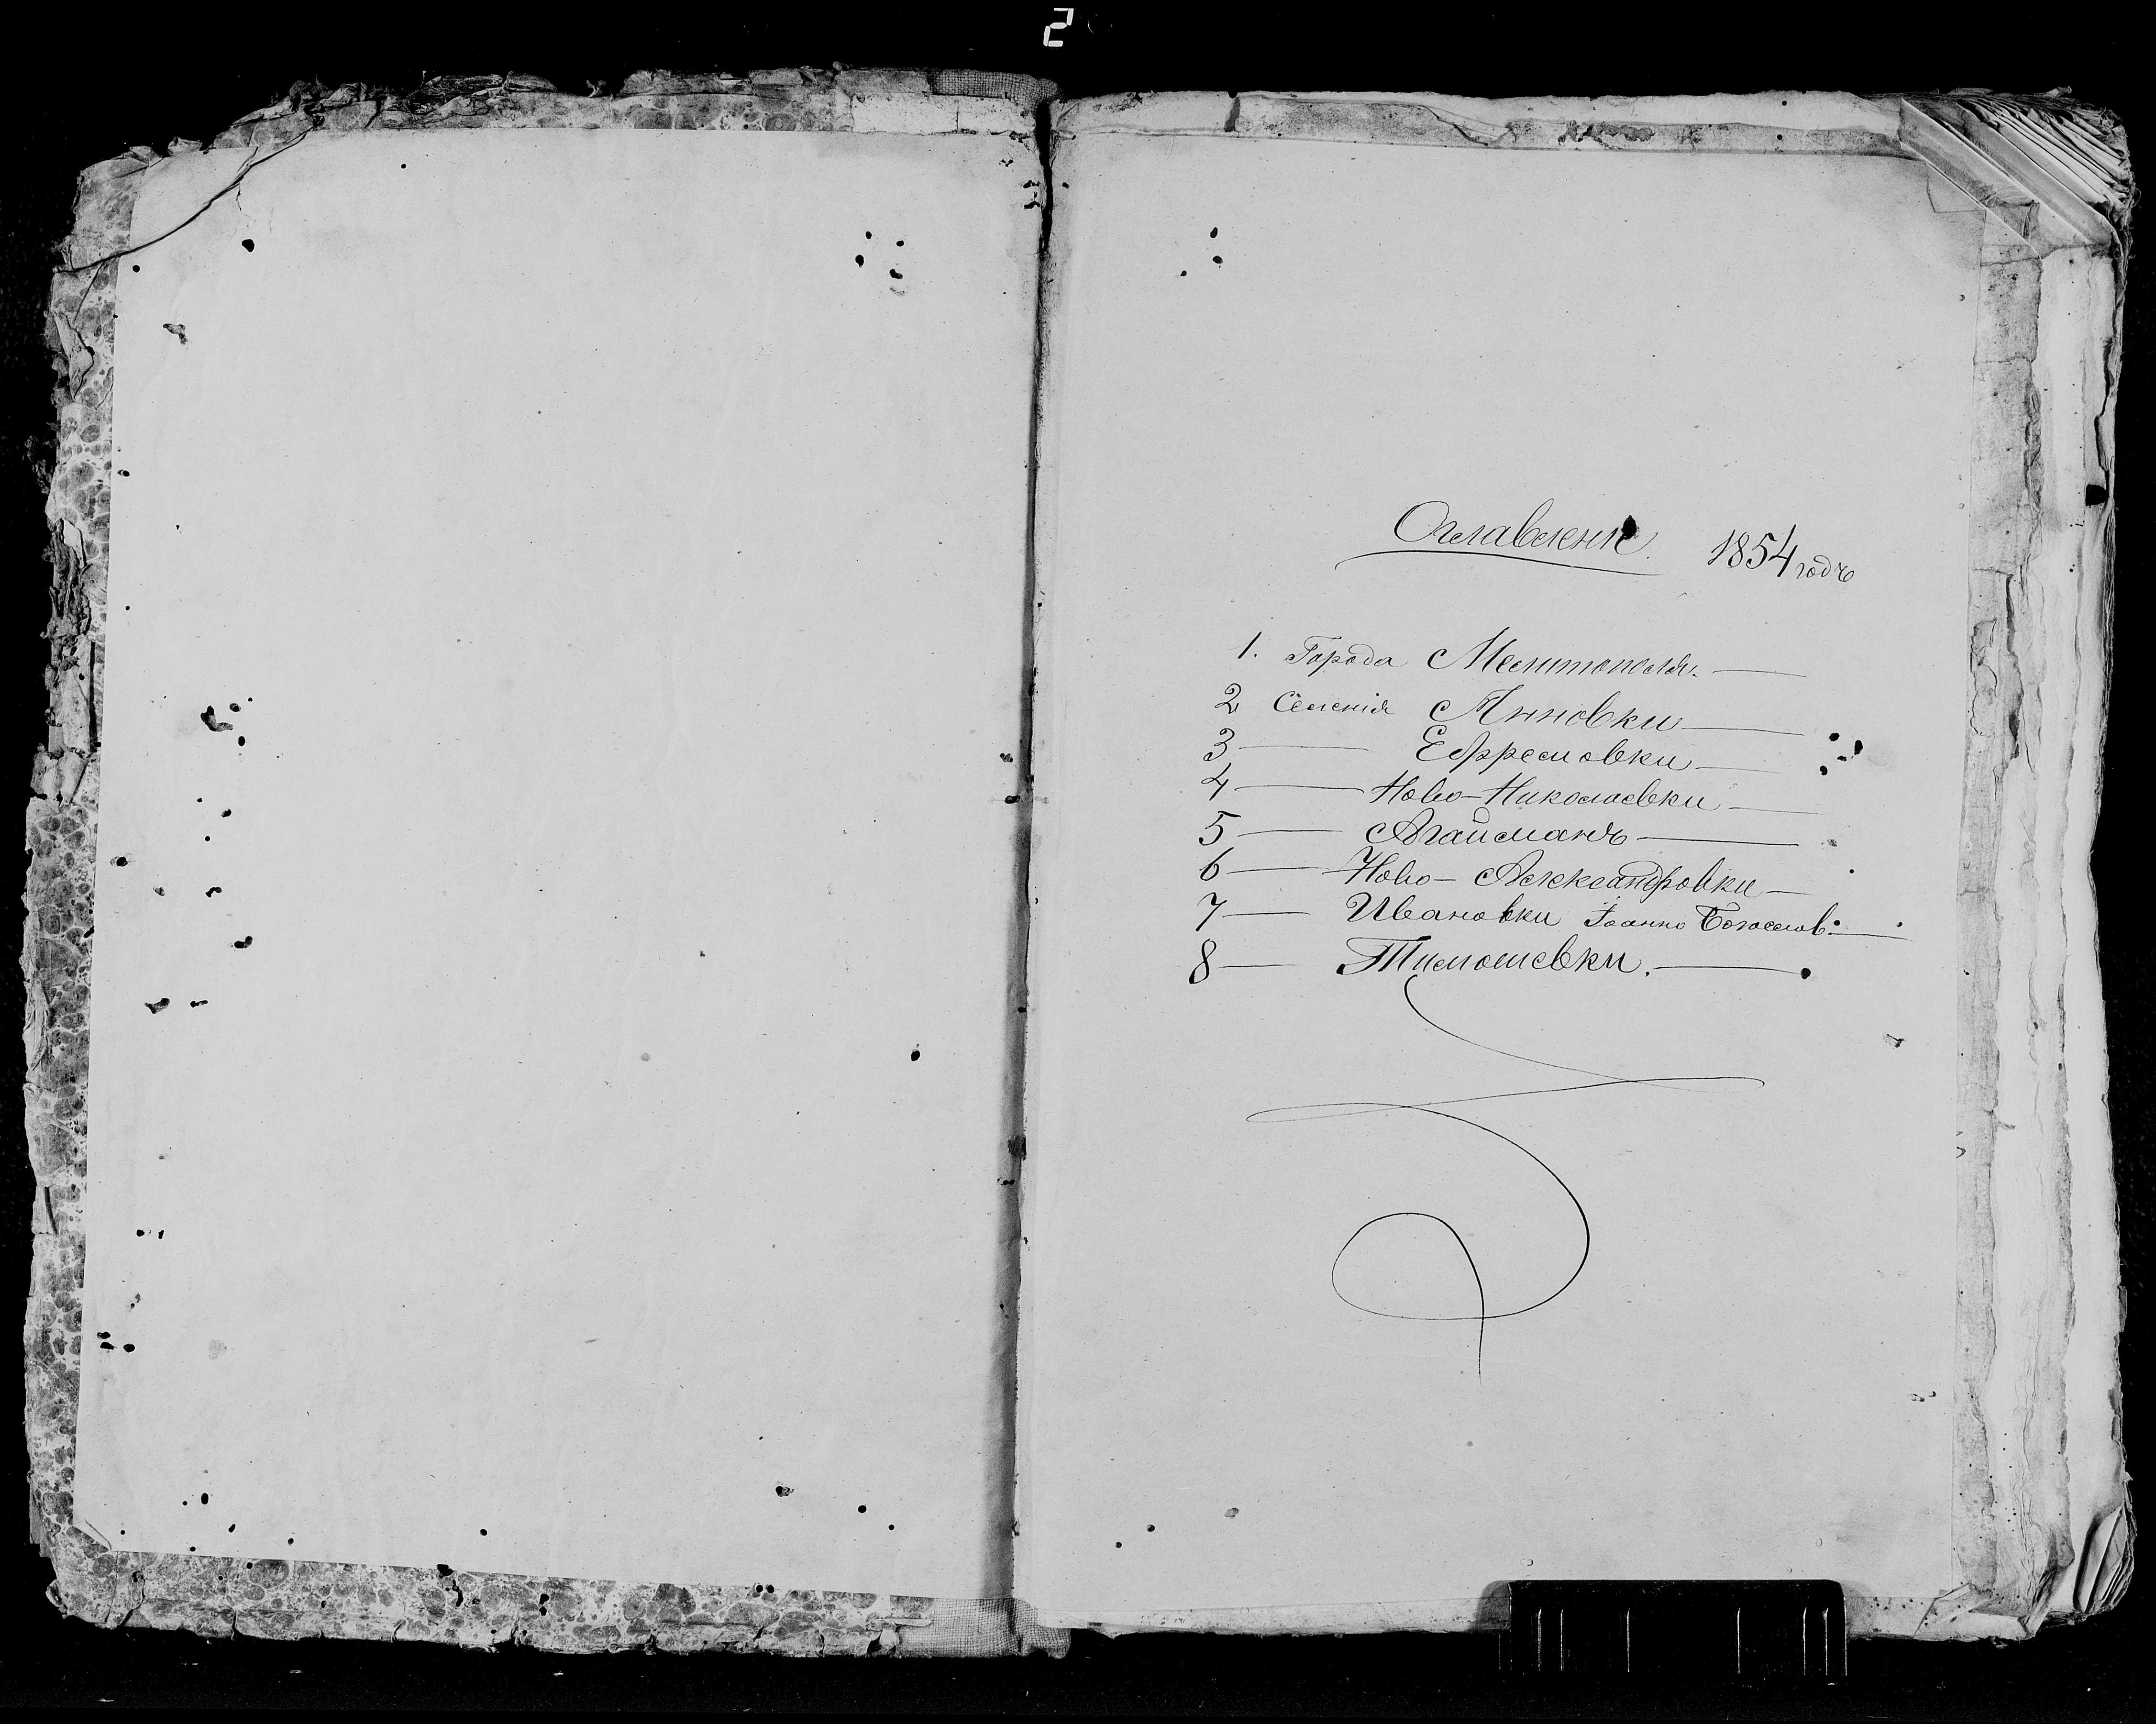 2
Оглавленіе. 1854 годъ
1. Города Мелитополя. —
2 Селенія Анновки —
3 — Ефремовки —
4 — Ново-Николаевки —
5 — Агайманъ —
6 — Ново-Александровки —
7 — Ивановки Іоанно Богослов. —
8 — Тимошевки. —